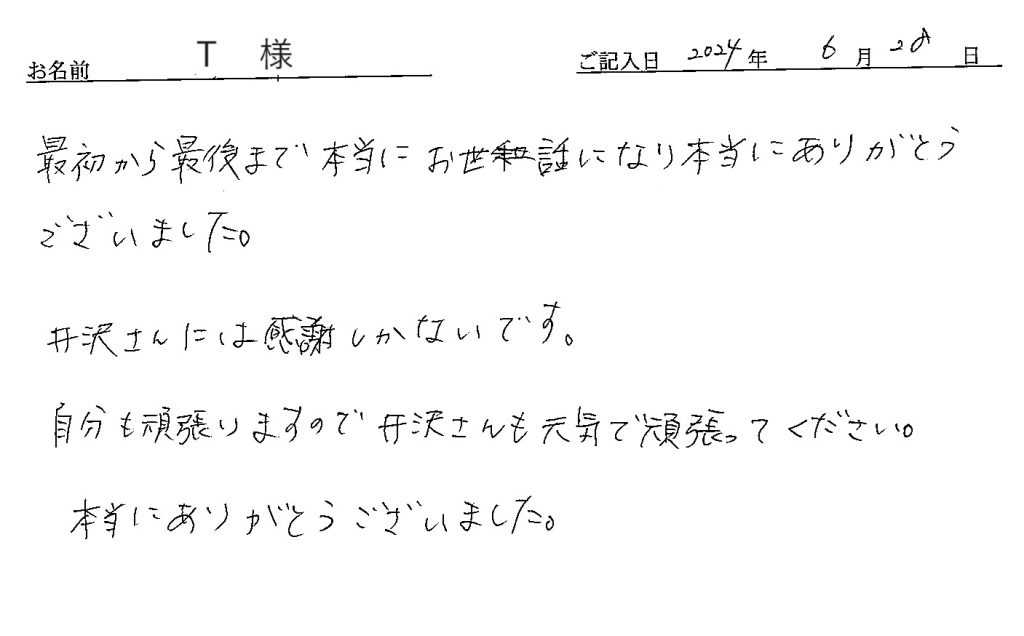 お名前 T 様 ご記入日 2024年 6月28日
最初から最後まで本当にお世話になり本当にありがとう
ございました。
井沢さんには感謝しかないです。
自分も頑張りますので井沢さんも元気で頑張ってください。
本当にありがとうございました。